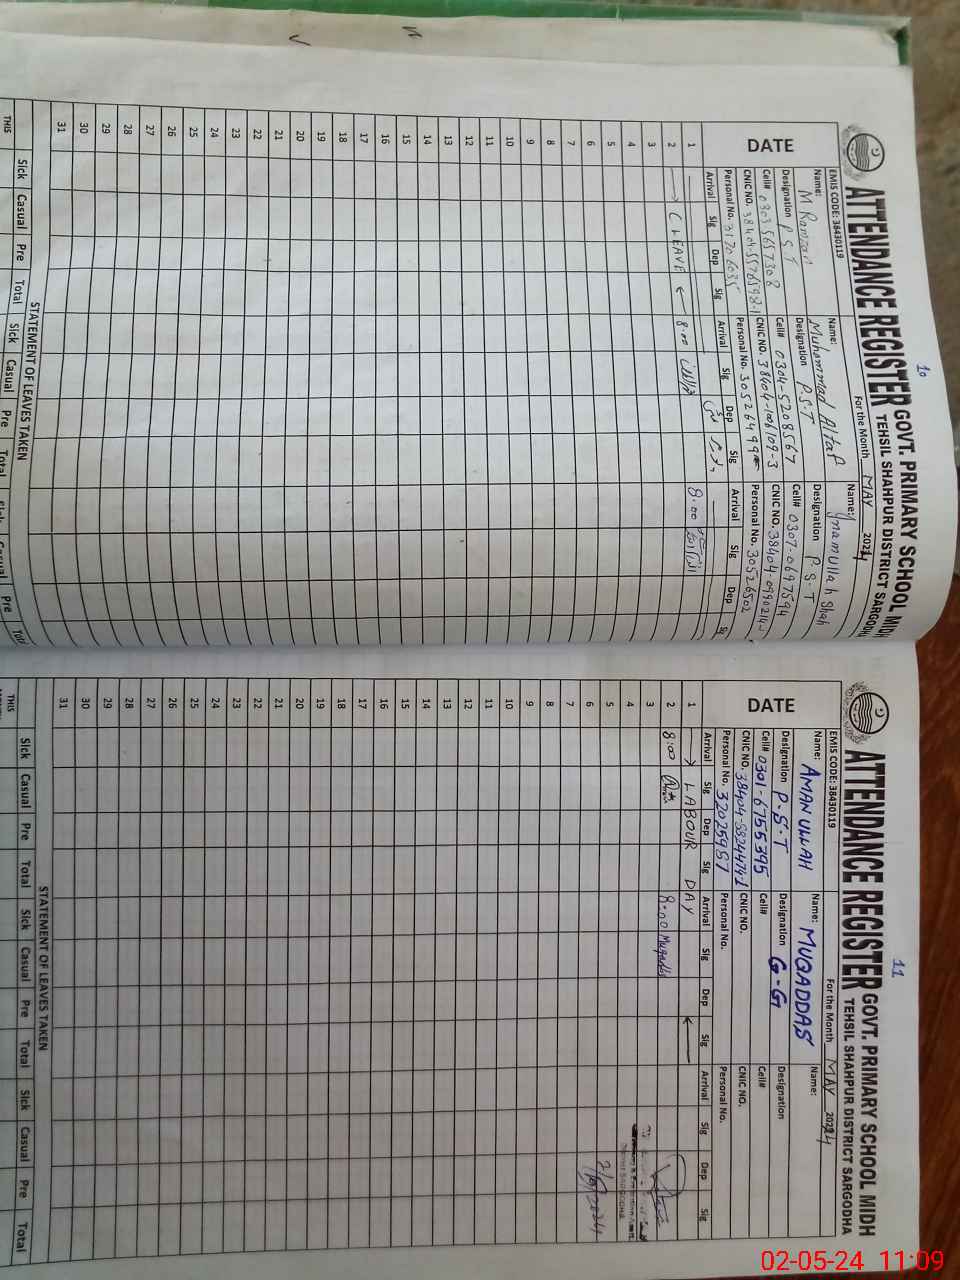 10
ATTENDANCE REGISTER GOVT. PRIMARY SCHOOL MIDH
TEHSIL SHAHPUR DISTRICT SARGODHA
EMIS CODE: 38430119 For the Month MAY 2024
DATE
Name: M Ramzan
Designation P.S.T
Cell# 03035657308
CNIC NO. 38404-5576598-1
Personal No. 31706035
Name: Muhammad Altaf
Designation P.S.T
Cell# 0304-5208567
CNIC NO. 38404-106109-3
Personal No. 30526499
Name: Ynamullah Shah
Designation P.S.T
Cell# 0307-0697594
CNIC NO. 38404-0990214-1
Personal No. 30526502
Arrival Sig Dep Sig Arrival Sig Dep Sig Arrival Sig Dep Sig
1
2 C LEAVE 8:00 8:00
3
4
5
6
7
8
9
10
11
12
13
14
15
16
17
18
19
20
21
22
23
24
25
26
27
28
29
30
31
STATEMENT OF LEAVES TAKEN
THIS Sick Casual Pre Total Sick Casual Pre Total Sick Casual Pre Total
11
ATTENDANCE REGISTER GOVT. PRIMARY SCHOOL MIDH
TEHSIL SHAHPUR DISTRICT SARGODHA
EMIS CODE: 38430119 For the Month MAY 2024
DATE
Name: AMAN ULLAH
Designation P.S.T
Cell# 0301-6755395
CNIC NO. 38404-5824474-1
Personal No. 32025987
Name: MUQADDAS
Designation G-G
Cell#
CNIC NO.
Personal No.
Name:
Designation
Cell#
CNIC NO.
Personal No.
Arrival Sig Dep Sig Arrival Sig Dep Sig Arrival Sig Dep Sig
1 LABOUR DAY
2 8:00 8:00 Muqaddas
3
4
5
6 2/05/2024
7
8
9
10
11
12
13
14
15
16
17
18
19
20
21
22
23
24
25
26
27
28
29
30
31
STATEMENT OF LEAVES TAKEN
THIS Sick Casual Pre Total Sick Casual Pre Total Sick Casual Pre Total
02-05-24 11:09